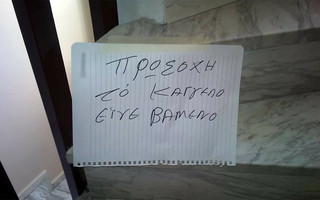 ΠΡΟΣΟΧΗ
ΤΟ ΚΑΓΓΕΛΟ
ΕΙΝΕ ΒΑΜΕΝΟ